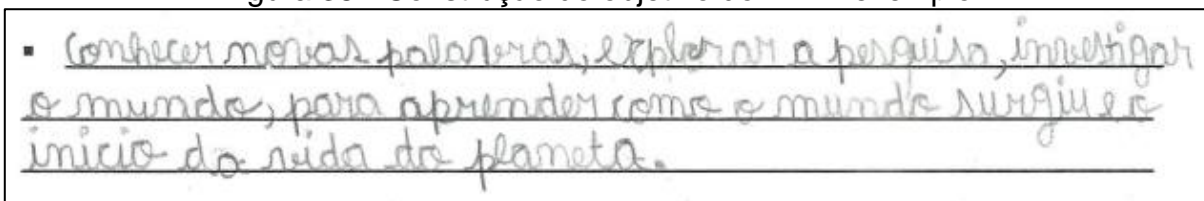 ▪ Conhecer novas palavras, explorar a pesquisa, investigar
o mundo, para aprender como o mundo surgiu e o
inicio da vida do planeta.